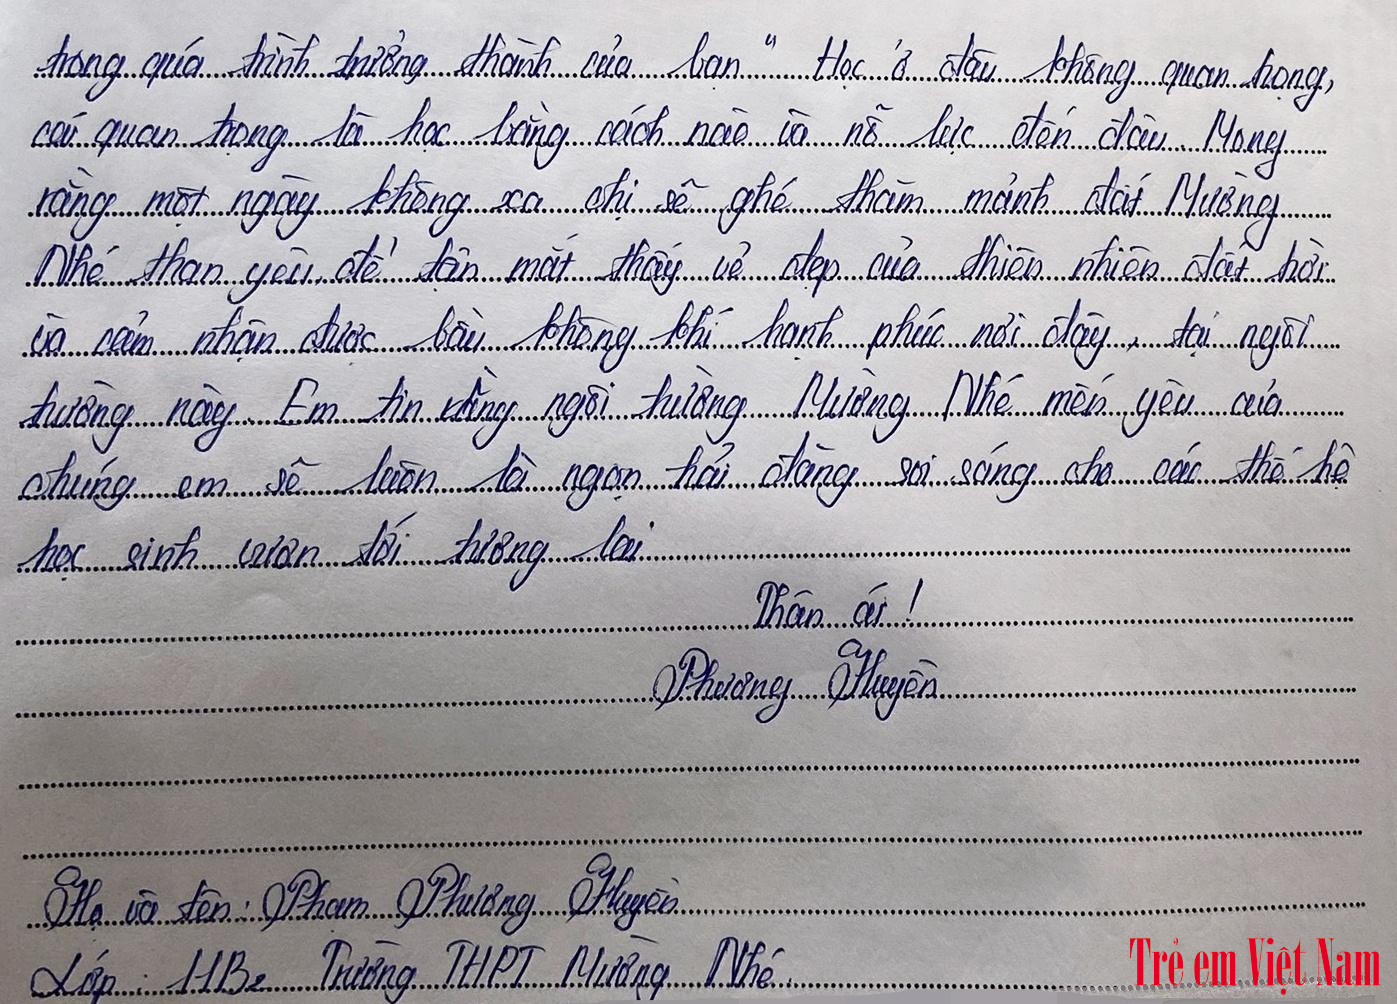 trong quá trình trưởng thành của bạn" Học ở đâu không quan trọng,
cái quan trọng là học bằng cách nào và nỗ lực đến đâu. Mong
rằng một ngày không xa chị sẽ ghé thăm mảnh đất Mường
Nhé thân yêu, để tận mắt thấy vẻ đẹp của thiên nhiên đất trời
và cảm nhận được bầu không khí hạnh phúc nơi đây, tại ngôi
trường này. Em tin rằng ngôi trường Mường Nhé mến yêu của
chúng em sẽ luôn là ngọn hải đăng soi sáng cho các thế hệ
học sinh vươn tới tương lai
Thân ái!
Phương Huyền
Họ và tên: Phạm Phương Huyền
Lớp: 11B2 Trường THPT Mường Nhé.
Trẻ em Việt Nam